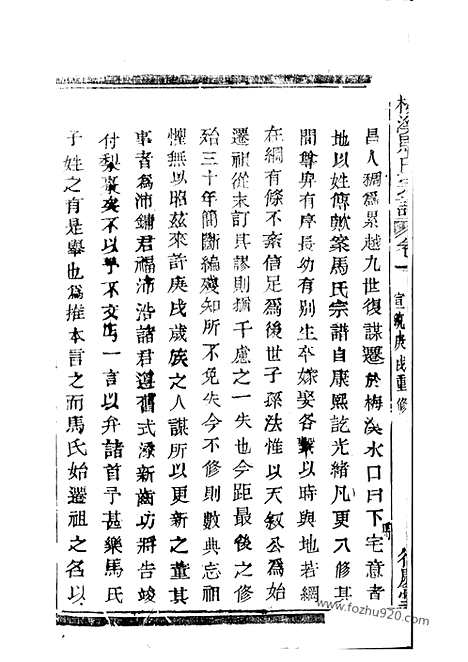 梅溪馬氏宗譜 卷一 宣統庚戌重修
昌人稠爲累越九世復謀遷於梅溪水口曰下馬宅意者
地以姓傳歟案馬氏宗譜自康熙訖光緒凡更八修其
間尊卑有序長幼有別生卒嫁娶各繫以時與地若網
在綱有條不紊信足爲後世子孫法惟以天叙公爲始
遷祖從未訂其謬則猶千慮之一失也今距最後之修
殆三十年簡斷編殘知所不免失今不修則數典忘祖
懼無以昭茲來許庚戌歲族之人謀所以更新之董其
事者爲沛鏞君福沛沿諸君遵舊式添新齒功將告竣
付梨棗矣不以學不文丐一言以弁諸首予甚樂馬氏
子姓之有是舉也爲推本言之而馬氏始遷祖之名以
www.fozhu920.com